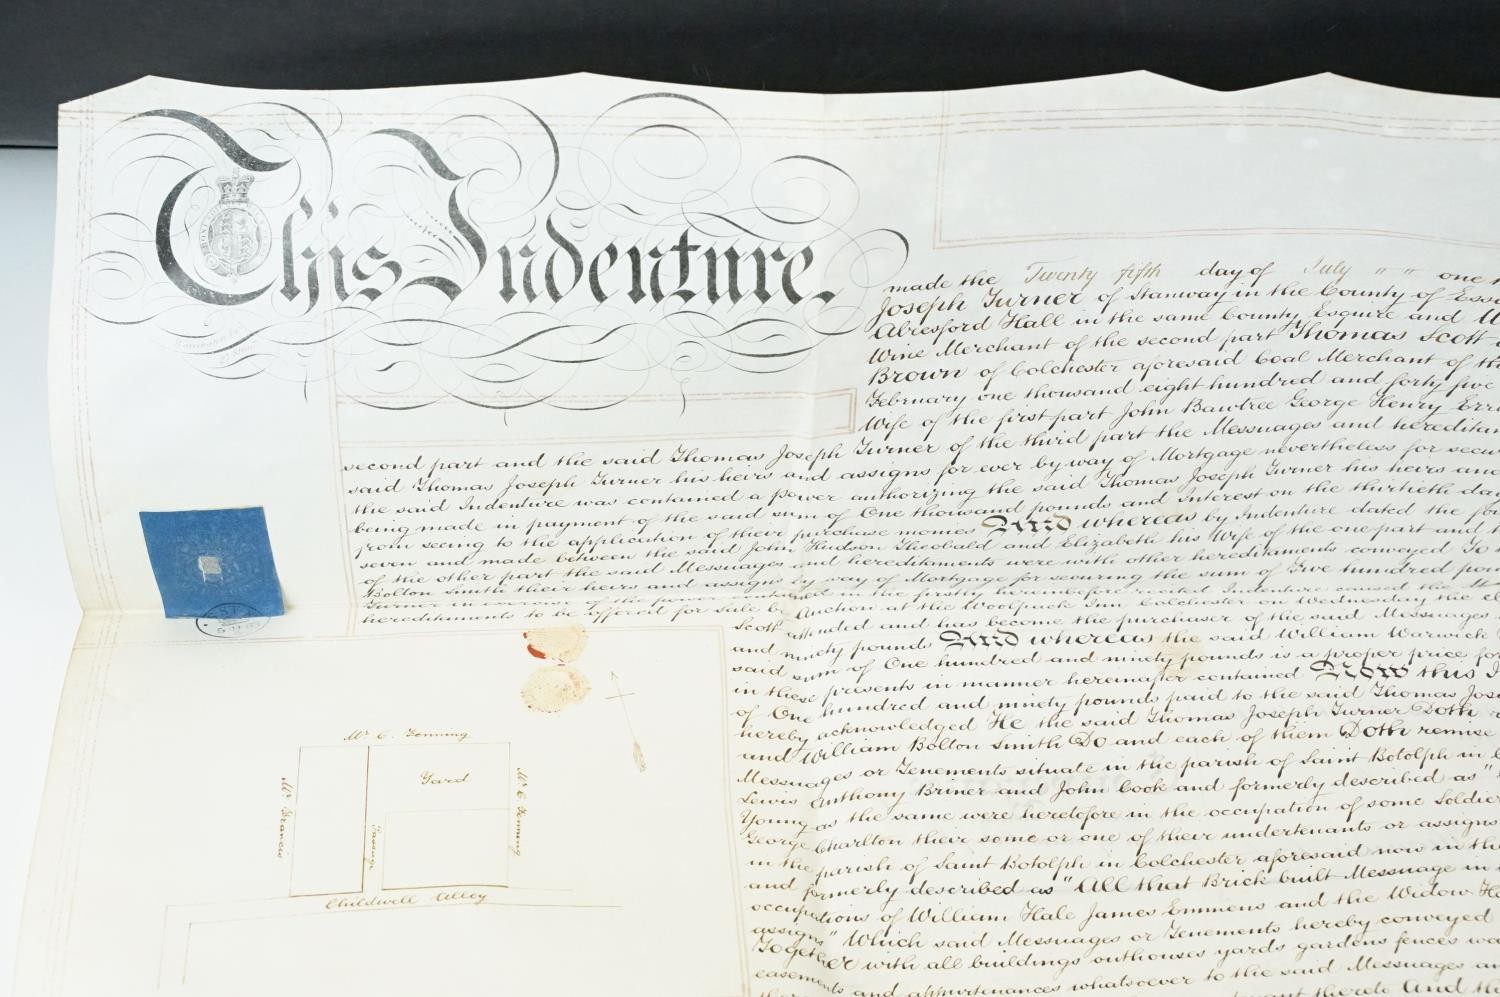 This Indenture.
made the Twenty fifth day of July " " one
Joseph Turner of Stanway in the County of
Alresford Hall in the same County Esquire and
Wine Merchant of the second part Thomas Scott
Brown of Colchester aforesaid Coal Merchant of
February one thousand eight hundred and forty five
Wife of the first part John Bawtree George Henry
second part and the said Thomas Joseph Turner of the third part the Messuages and
said Thomas Joseph Turner his heirs and assigns for ever by way of Mortgage nevertheless for
the said Indenture was contained a power authorizing the said Thomas Joseph Turner his heirs and
being made in payment of the said sum of One thousand pounds and Interest on the thirtieth day
from seeing to the application of their purchase monies And whereas by Indenture dated the
seven and made between the said John Hudson Theobald and Elizabeth his Wife of the one part and
of the other part the said Messuages and hereditaments were with other hereditaments conveyed To
Bolton Smith their heirs and assigns by way of Mortgage for securing the sum of Five hundred
Turner in exercise of the power contained in the firstly hereinbefore recited Indenture caused the
hereditaments to be offered for sale by Auction at the Woolpack Inn Colchester on Wednesday the
Scott attended and has become the purchaser of the said Messuages
and ninety pounds And whereas the said William Warwick
said sum of One hundred and ninety pounds is a proper price for
in these presents in manner hereinafter contained Now this
of One hundred and ninety pounds paid to the said Thomas
hereby acknowledged He the said Thomas Joseph Turner Doth
and William Bolton Smith Do and each of them Doth remise
Messuages or Tenements situate in the parish of Saint Botolph in
Lewis Anthony Briner and John Cook and formerly described as "
Young as the same were heretofore in the occupation of some
George Charlton their some or one of their undertenants or assigns
in the parish of Saint Botolph in Colchester aforesaid now in the
and formerly described as "All that Brick built Messuage in
occupations of William Hale James Emmens and the Widow
assigns" Which said Messuages or Tenements hereby conveyed
Together with all buildings outhouses yards gardens fences
easements and appurtenances whatsoever to the said Messuages
thereto And the
Mr. C. Fenning
Yard
Passage
Mr. C. Fenning
Childwell Alley